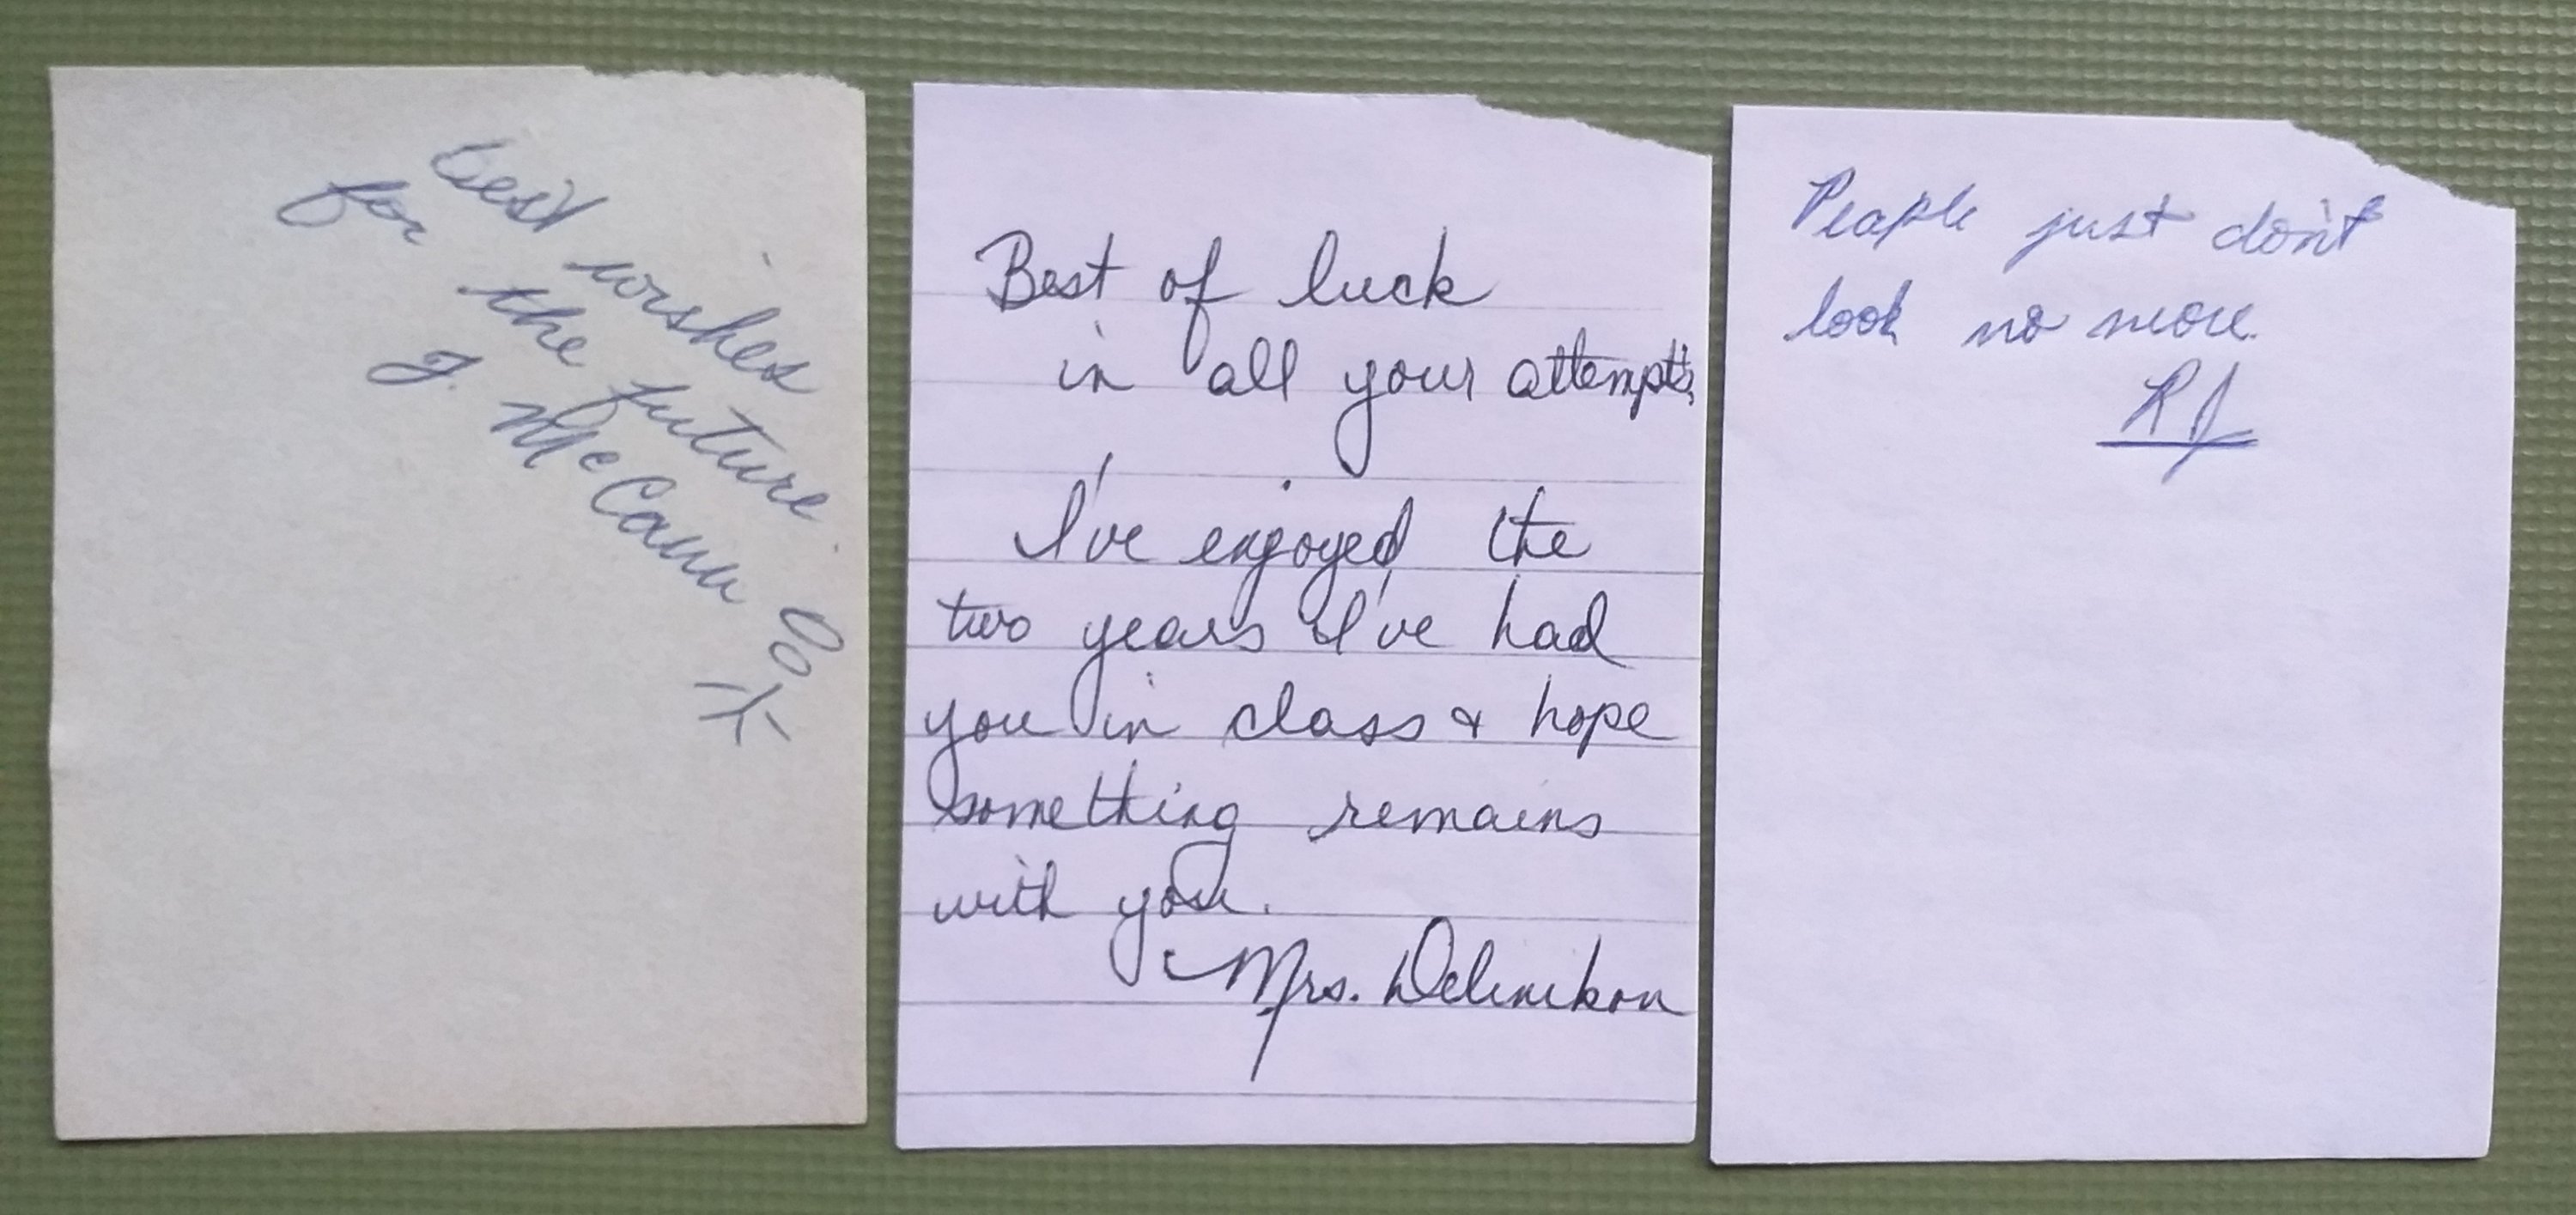 best wishes
for the future
J. McCann
Best of luck
in all your attempts
I've enjoyed the
two years I've had
you in class & hope
something remains
with you.
Mrs.
People just don't
look no more.
RJ